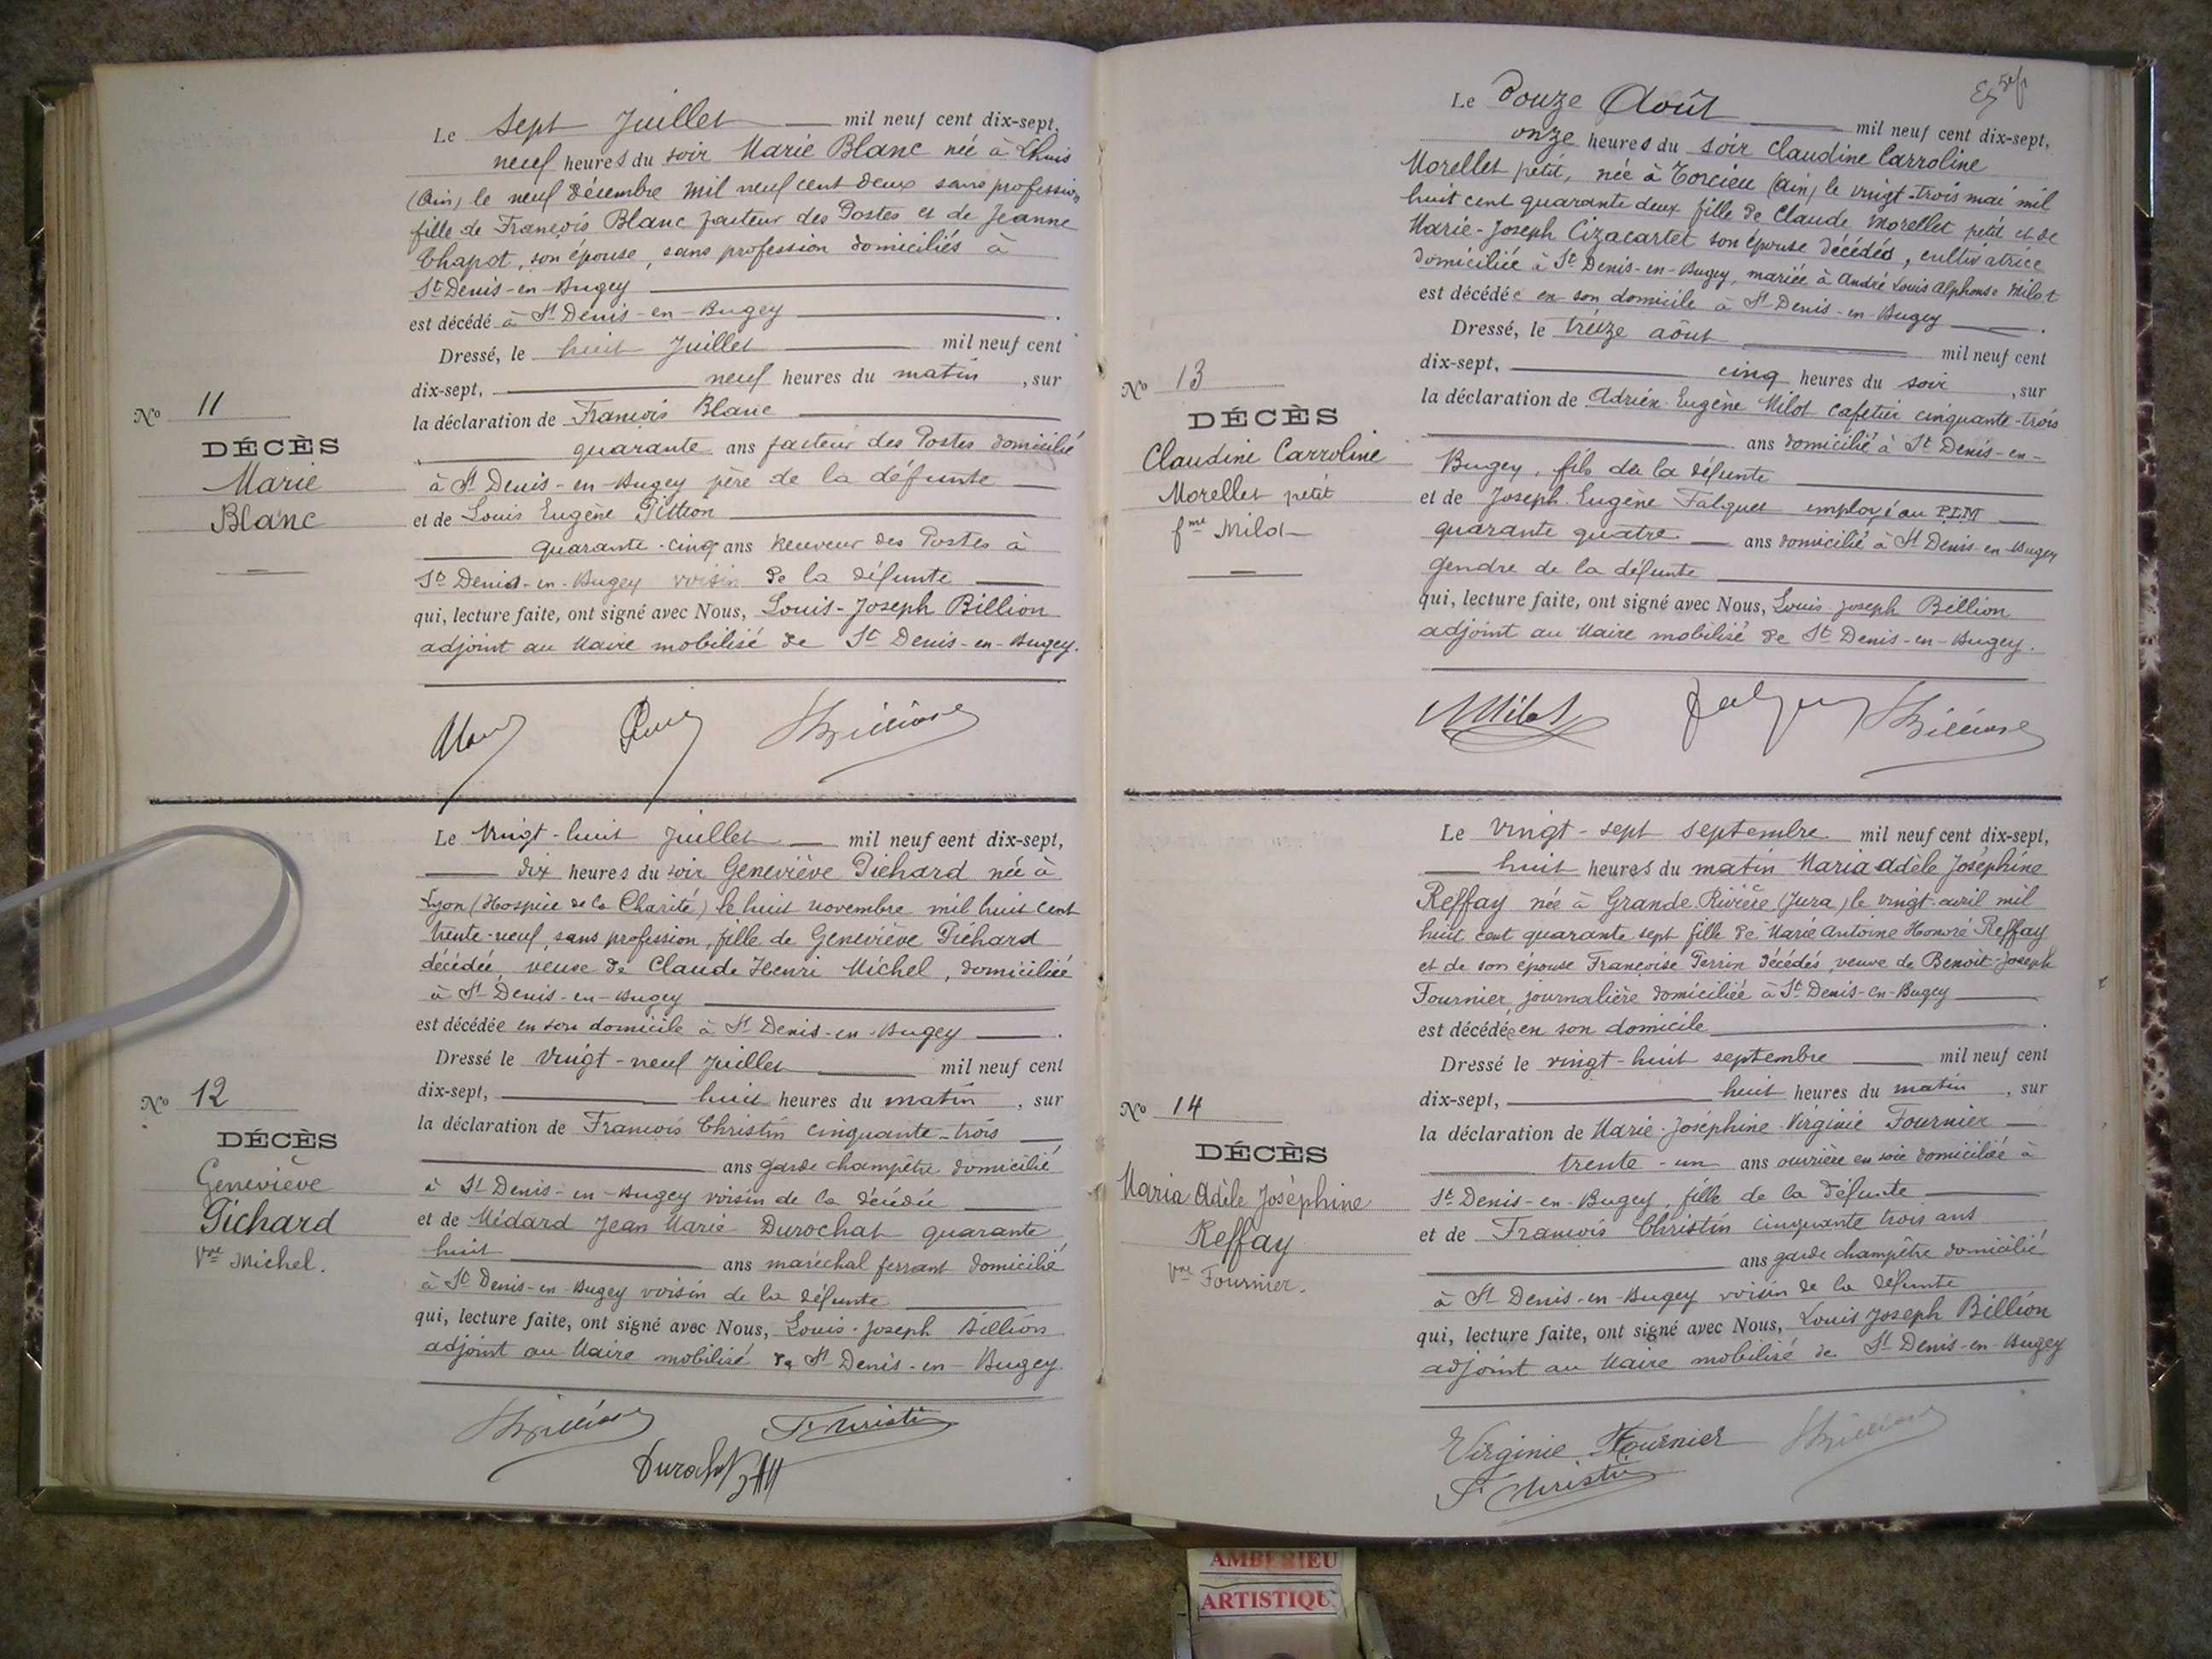 Le sept Juillet mil neuf cent dix-sept,
neuf heures du soir Marie Blanc née à Lhuis
(Ain) le neuf décembre mil neuf cent deux sans profession
fille de François Blanc facteur des Postes et de Jeanne
Chapot, son épouse, sans profession domiciliés à
St Denis-en-Bugey
est décédé à St Denis-en-Bugey.
Dressé, le huit Juillet mil neuf cent
dix-sept, neuf heures du matin, sur
la déclaration de François Blanc
quarante ans facteur des Postes domicilié
à St Denis-en-Bugey père de la défunte
et de Louis Eugène
quarante-cinq ans Receveur des Postes à
St Denis-en-Bugey voisin de la défunte
qui, lecture faite, ont signé avec Nous, Louis-Joseph Billion
adjoint au Maire mobilisé de St Denis-en-Bugey.
No 11
DÉCÈS
Marie
Blanc
Le vingt-huit juillet mil neuf cent dix-sept,
dix heures du soir Geneviève Pichard née à
Lyon (Hospice de la Charité) le huit novembre mil huit cent
trente-neuf, sans profession, fille de Geneviève Pichard
décédée, veuve de Claude Henri Michel, domiciliée
à St Denis-en-Bugey
est décédée en son domicile à St Denis-en-Bugey.
Dressé le vingt-neuf Juillet mil neuf cent
dix-sept, huit heures du matin, sur
la déclaration de François Christin cinquante-trois
ans garde champêtre domicilié
à St Denis-en-Bugey voisin de la décédée
et de Médard Jean Marie Durochat quarante
huit ans maréchal ferrant domicilié
à St Denis-en-Bugey voisin de la défunte
qui, lecture faite, ont signé avec Nous, Louis-Joseph Billion
adjoint au Maire mobilisé de St Denis-en-Bugey
No 12
DÉCÈS
Geneviève
Pichard
Vve Michel.
Billion
F Christin
Durochat
Le Douze Août mil neuf cent dix-sept,
onze heures du soir Claudine Carroline
Morellet petit, née à Torcieu (Ain) le vingt-trois mai mil
huit cent quarante deux fille de Claude Morellet petit et de
Marie-Joseph Cizacartet son épouse décédés, cultivatrice
domiciliée à St Denis-en-Bugey, mariée à André Louis Alphonse Milot
est décédée en son domicile à St Denis-en-Bugey.
Dressé, le treize août mil neuf cent
dix-sept, cinq heures du soir, sur
la déclaration de Adrien Eugène Milot cafetier cinquante-trois
ans domicilié à St Denis-en-
Bugey, fils de la défunte
et de Joseph Eugène Falquet employé au P.L.M
quarante quatre ans domicilié à St Denis-en-Bugey
gendre de la défunte
qui, lecture faite, ont signé avec Nous, Louis Joseph Billion
adjoint au Maire mobilisé de St Denis-en-Bugey.
No 13
DÉCÈS
Claudine Carroline
Morellet petit
fme Milot
Milot
Billion
Le vingt-sept septembre mil neuf cent dix-sept,
huit heures du matin Maria Adèle Joséphine
Reffay née à Grande Rivière (Jura) le vingt avril mil
huit cent quarante sept fille de Marie Antoine Honoré Reffay
et de son épouse Françoise Perrin décédés, veuve de Benoît-Joseph
Fournier journalière domiciliée à St Denis-en-Bugey
est décédée en son domicile.
Dressé le vingt-huit septembre mil neuf cent
dix-sept, huit heures du matin, sur
la déclaration de Marie-Joséphine-Virginie Fournier
trente-un ans ouvrière en soie domiciliée à
St Denis-en-Bugey, fille de la défunte
et de François Christin cinquante trois ans
ans garde champêtre domicilié
à St Denis-en-Bugey voisin de la défunte
qui, lecture faite, ont signé avec Nous, Louis Joseph Billion
adjoint au Maire mobilisé de St Denis-en-Bugey
No 14
DÉCÈS
Maria Adèle Joséphine
Reffay
Vve Fournier.
Virginie Fournier
Billion
F Christin
AMBERIEU
ARTISTIQU